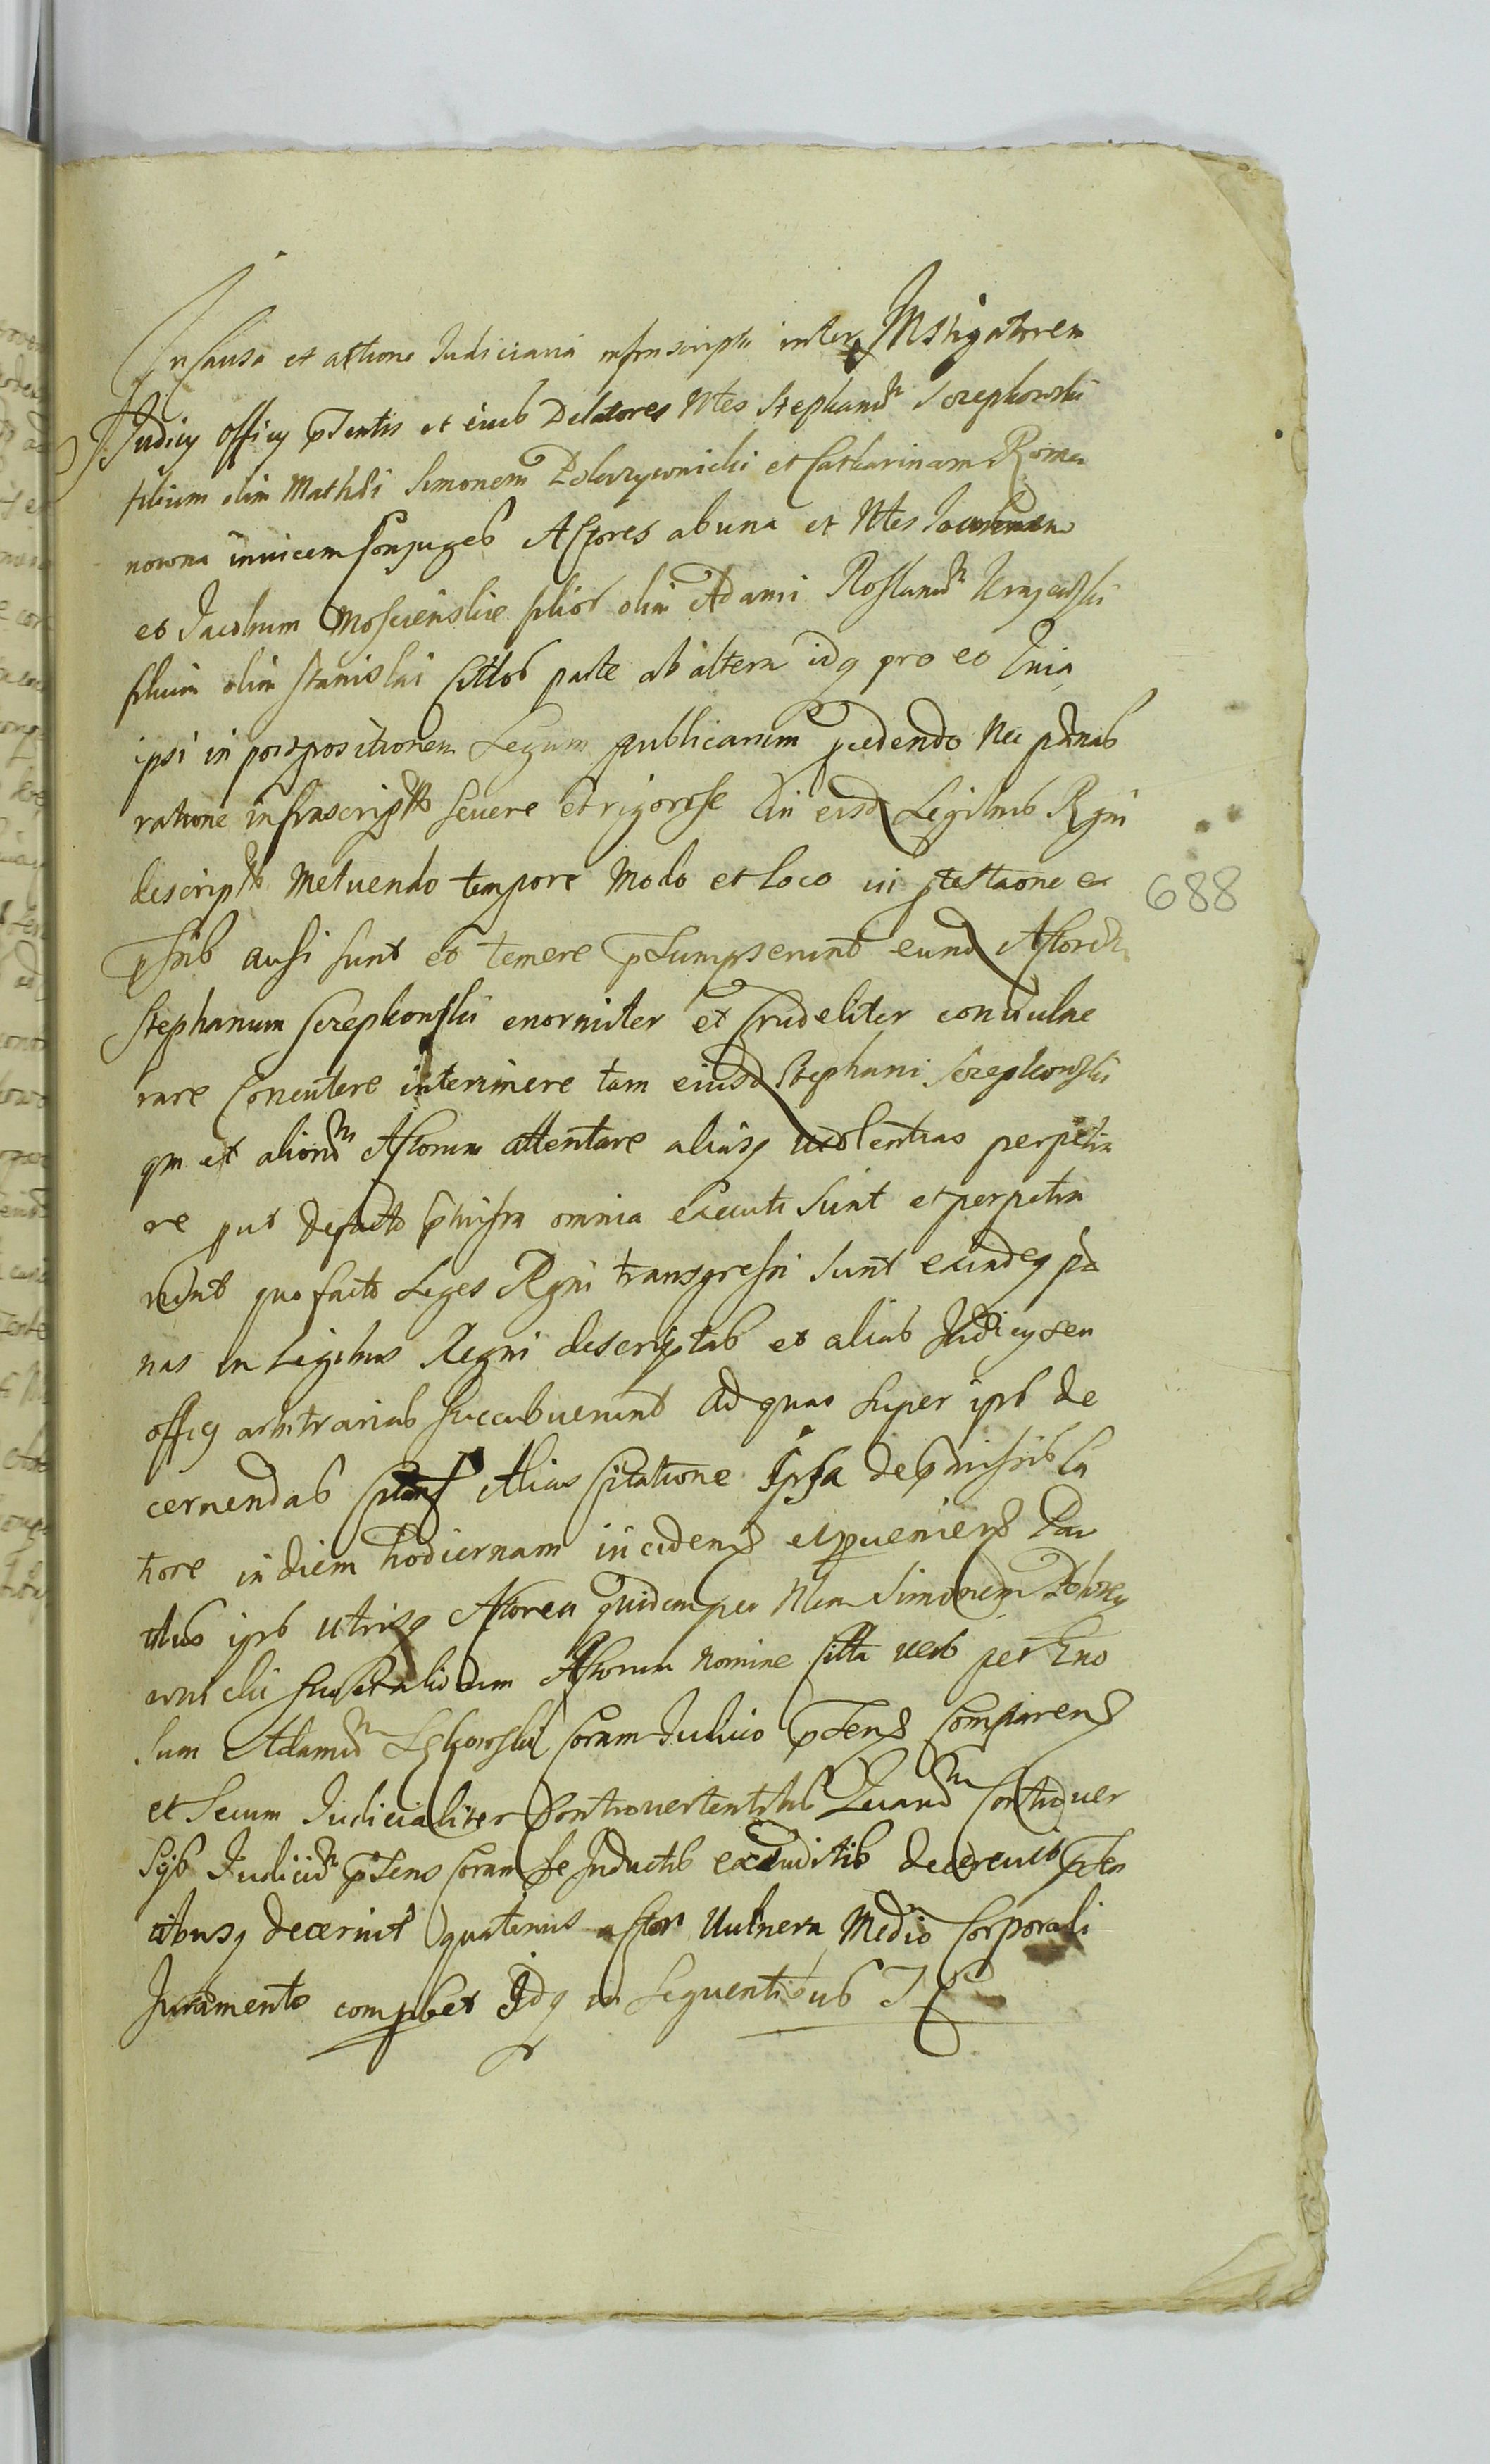 In Causa et actione Iudiciaria infrascripta inter Instigatorem
Iudicy officy pntis et eius Delatores Nbles Stephanum Szepkowski
filium olim Mathei Simonem Dobrzywnicki et Catharinam Roma
nowna invicem Conjuges Actores ab una et Nbles
et Jacobum Moscienskie filios olim Adami
filium olim Stanislai Cittos parte ab altera idq pro eo Quia
ipsi in postpositionem Legum publicarum procedendo Nec pænas
ratione infrascriptorum severe et rigorose in eisd Legibus Rgni
descriptas Metuendo tempore Modo et loco in ptestaone ex
pssis ausi sunt et temere psumpserunt eund Actorem
Stephanum Szepkowski enormiter et Crudeliter convulne
rare Concutere interimere tam eiusd Stephani Szepkowski
qm et aliorum Actorum attentare aliasq violentias perpetra
re put defacto pmissa omnia executi sunt et perpetra
runt quo facto Leges Rgni transgressi sunt eoindeq pæ
nas in Legibus Regni descriptas et alias Judicy seu
officy arbitrarias succubuerunt ad quas super ipsis de
cernendas Citans Alias Citatione Ipsa de pmissis La
tiore in diem hodiernam incidens et pveniens Par
tibus ipsis utrisq Actorea quidem per Nlem Simonem Dobrzy
wnicki suo et aliorum Actorum nomine Citta vero per Gno
sum Adamum Coram Judicio pdens Comparens
et secum Judicialiter Controvertentibus Quarum Controver
sys Judicium pdens coram se Inductis exauditis decrevit
tibusq decernit quatenus actor Vulnera Medio Corporali
Juramento compbet Idq in sequentibus J C
688